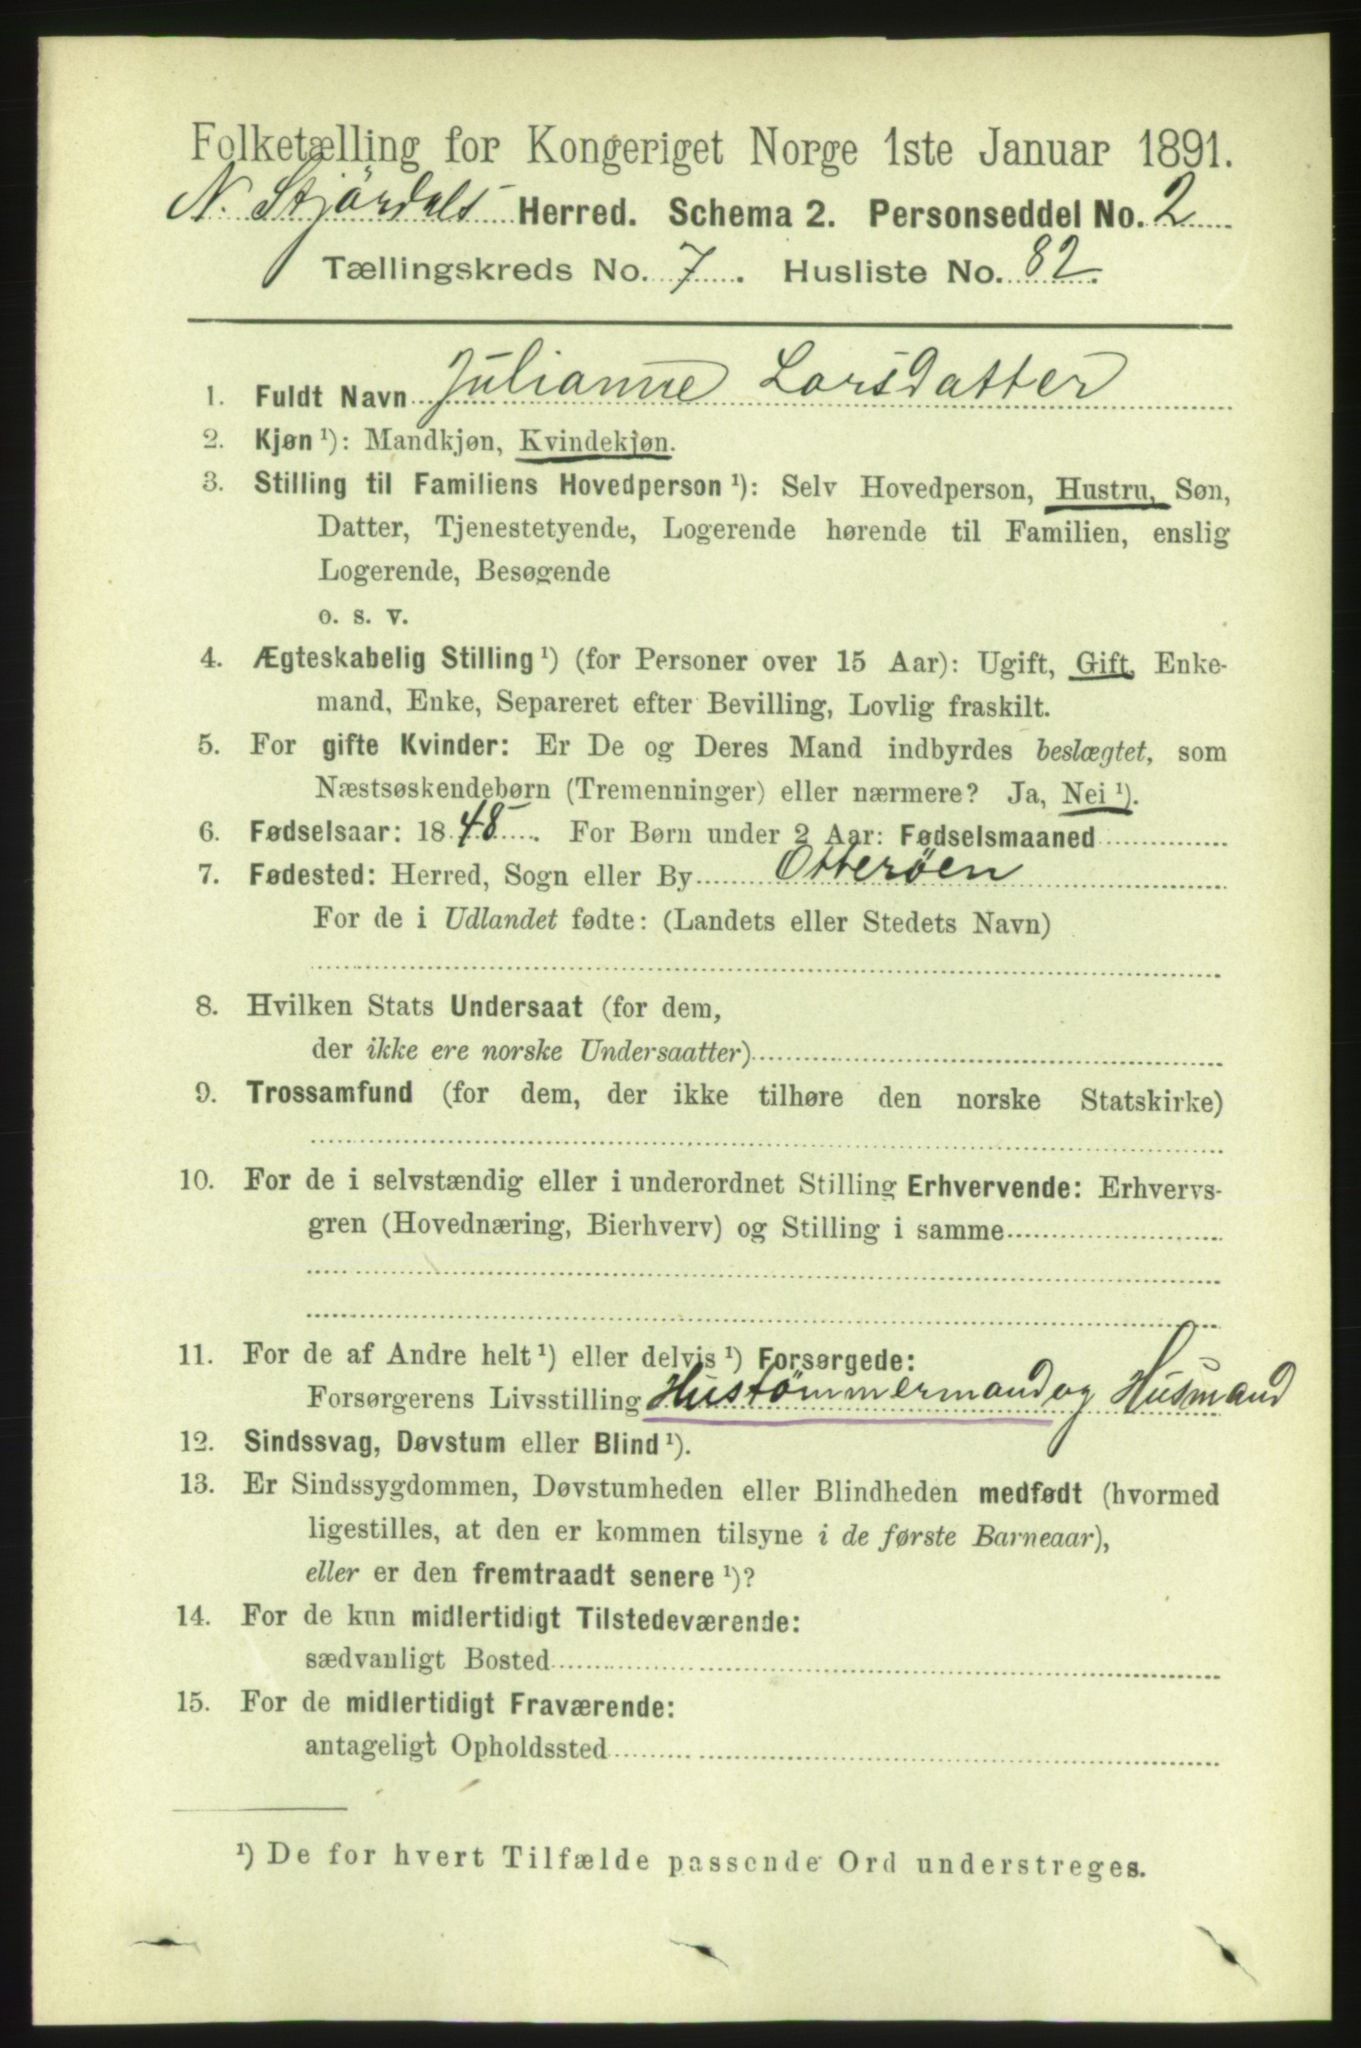 Folketælling for Kongeriget Norge 1ste Januar 1891.
N. Stjördals Herred. Schema 2. Personseddel No. 2
Tællingskreds No. 7. Husliste No. 82.
1. Fuldt Navn Julianne Larsdatter
2. Kjøn ¹): Mandkjøn, Kvindekjøn.
3. Stilling til Familiens Hovedperson ¹): Selv Hovedperson, Hustru, Søn,
Datter, Tjenestetyende, Logerende hørende til Familien, enslig
Logerende, Besøgende
o. s. v.
4. Ægteskabelig Stilling ¹) (for Personer over 15 Aar): Ugift, Gift, Enke-
mand, Enke, Separeret efter Bevilling, Lovlig fraskilt.
5. For gifte Kvinder: Er De og Deres Mand indbyrdes beslægtet, som
Næstsøskendebørn (Tremenninger) eller nærmere? Ja, Nei ¹).
6. Fødselsaar: 1848. For Børn under 2 Aar: Fødselsmaaned
7. Fødested: Herred, Sogn eller By Otterøen
For de i Udlandet fødte: (Landets eller Stedets Navn)
8. Hvilken Stats Undersaat (for dem,
der ikke ere norske Undersaatter)
9. Trossamfund (for dem, der ikke tilhøre den norske Statskirke)
10. For de i selvstændig eller i underordnet Stilling Erhvervende: Erhvervs-
gren (Hovednæring, Bierhverv) og Stilling i samme
11. For de af Andre helt ¹) eller delvis ¹) Forsørgede:
Forsørgerens Livsstilling Hustömmermand og Husmand
12. Sindssvag, Døvstum eller Blind ¹).
13. Er Sindssygdommen, Døvstumheden eller Blindheden medfødt (hvormed
ligestilles, at den er kommen tilsyne i de første Barneaar),
eller er den fremtraadt senere ¹)?
14. For de kun midlertidigt Tilstedeværende:
sædvanligt Bosted
15. For de midlertidigt Fraværende:
antageligt Opholdssted
¹) De for hvert Tilfælde passende Ord understreges.